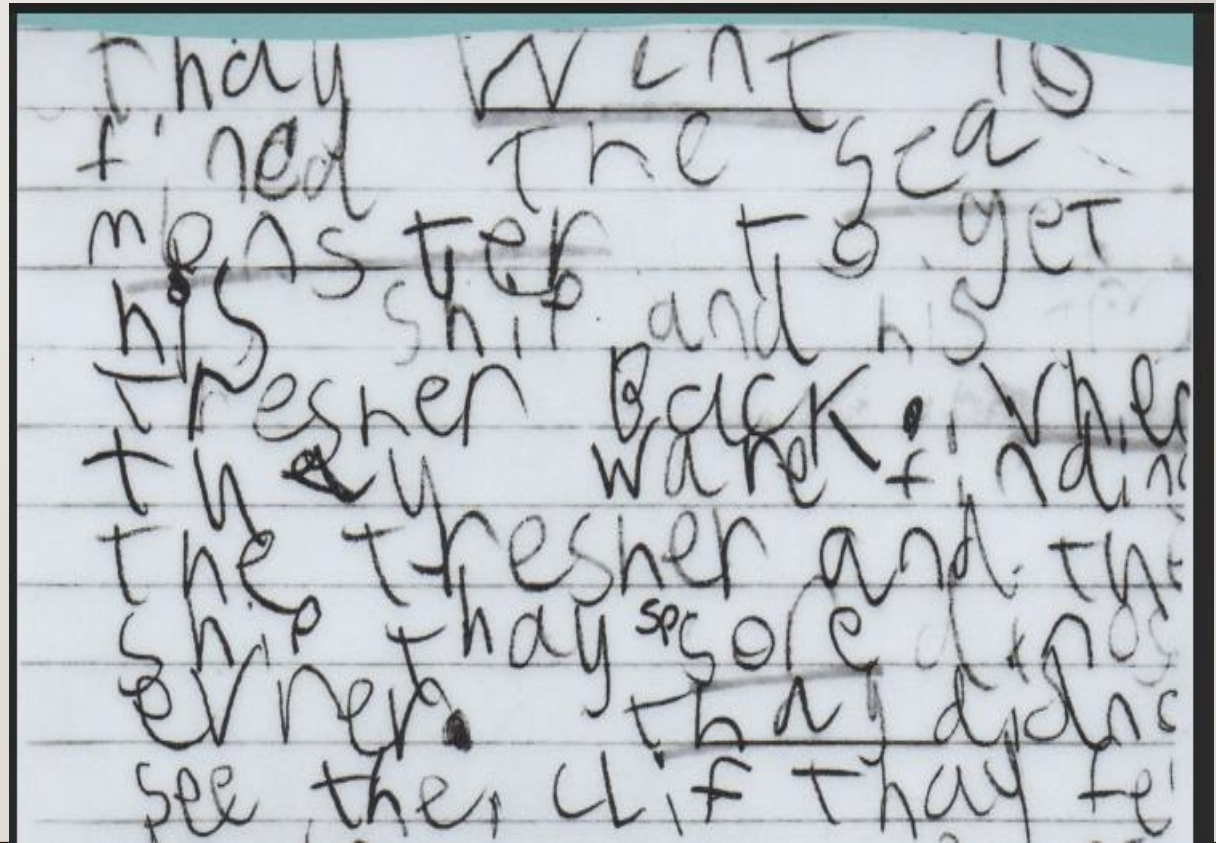 Thay Went to
fined The sea
menster to get
his ship and his
Tresher Back. When
they ware finding
the tresher and the
ship thay sp sore
evrrer. thay didn
see the clif thay fe